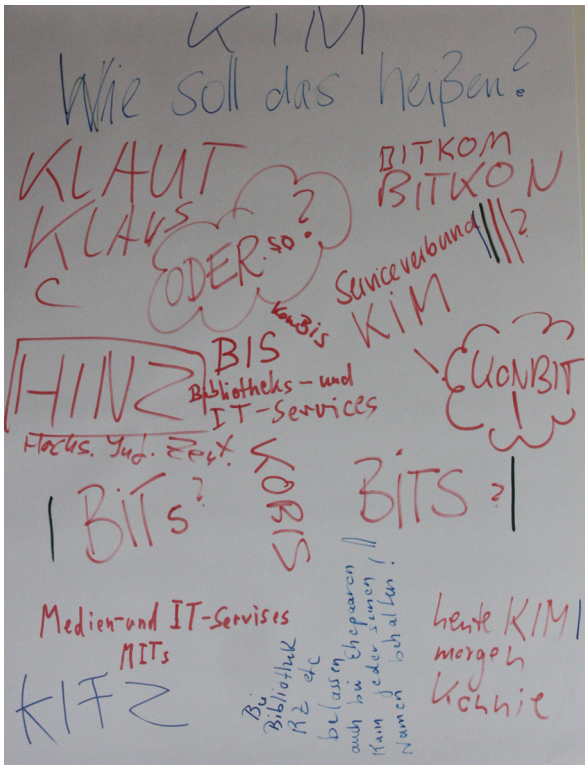 KIM
Wie soll das heißen?
KLAUT
KLAUS
C
ODER so?
BITKOM
BITKON
Serviceverbund
KIM
?
KomBis
BIS
Bibliotheks-und
IT-Services
HINZ
Hochs. Inf. Zent.
KONBIT
BITs?
KOBIS
BITS ?
Medien-und IT-Servises
MITs
KITZ
Bü
Bibliothek
RZ etc
belassen
auch bei Ehepaaren
kann jeder seinen
Namen behalten!
heute KIM
morgen
Konnie